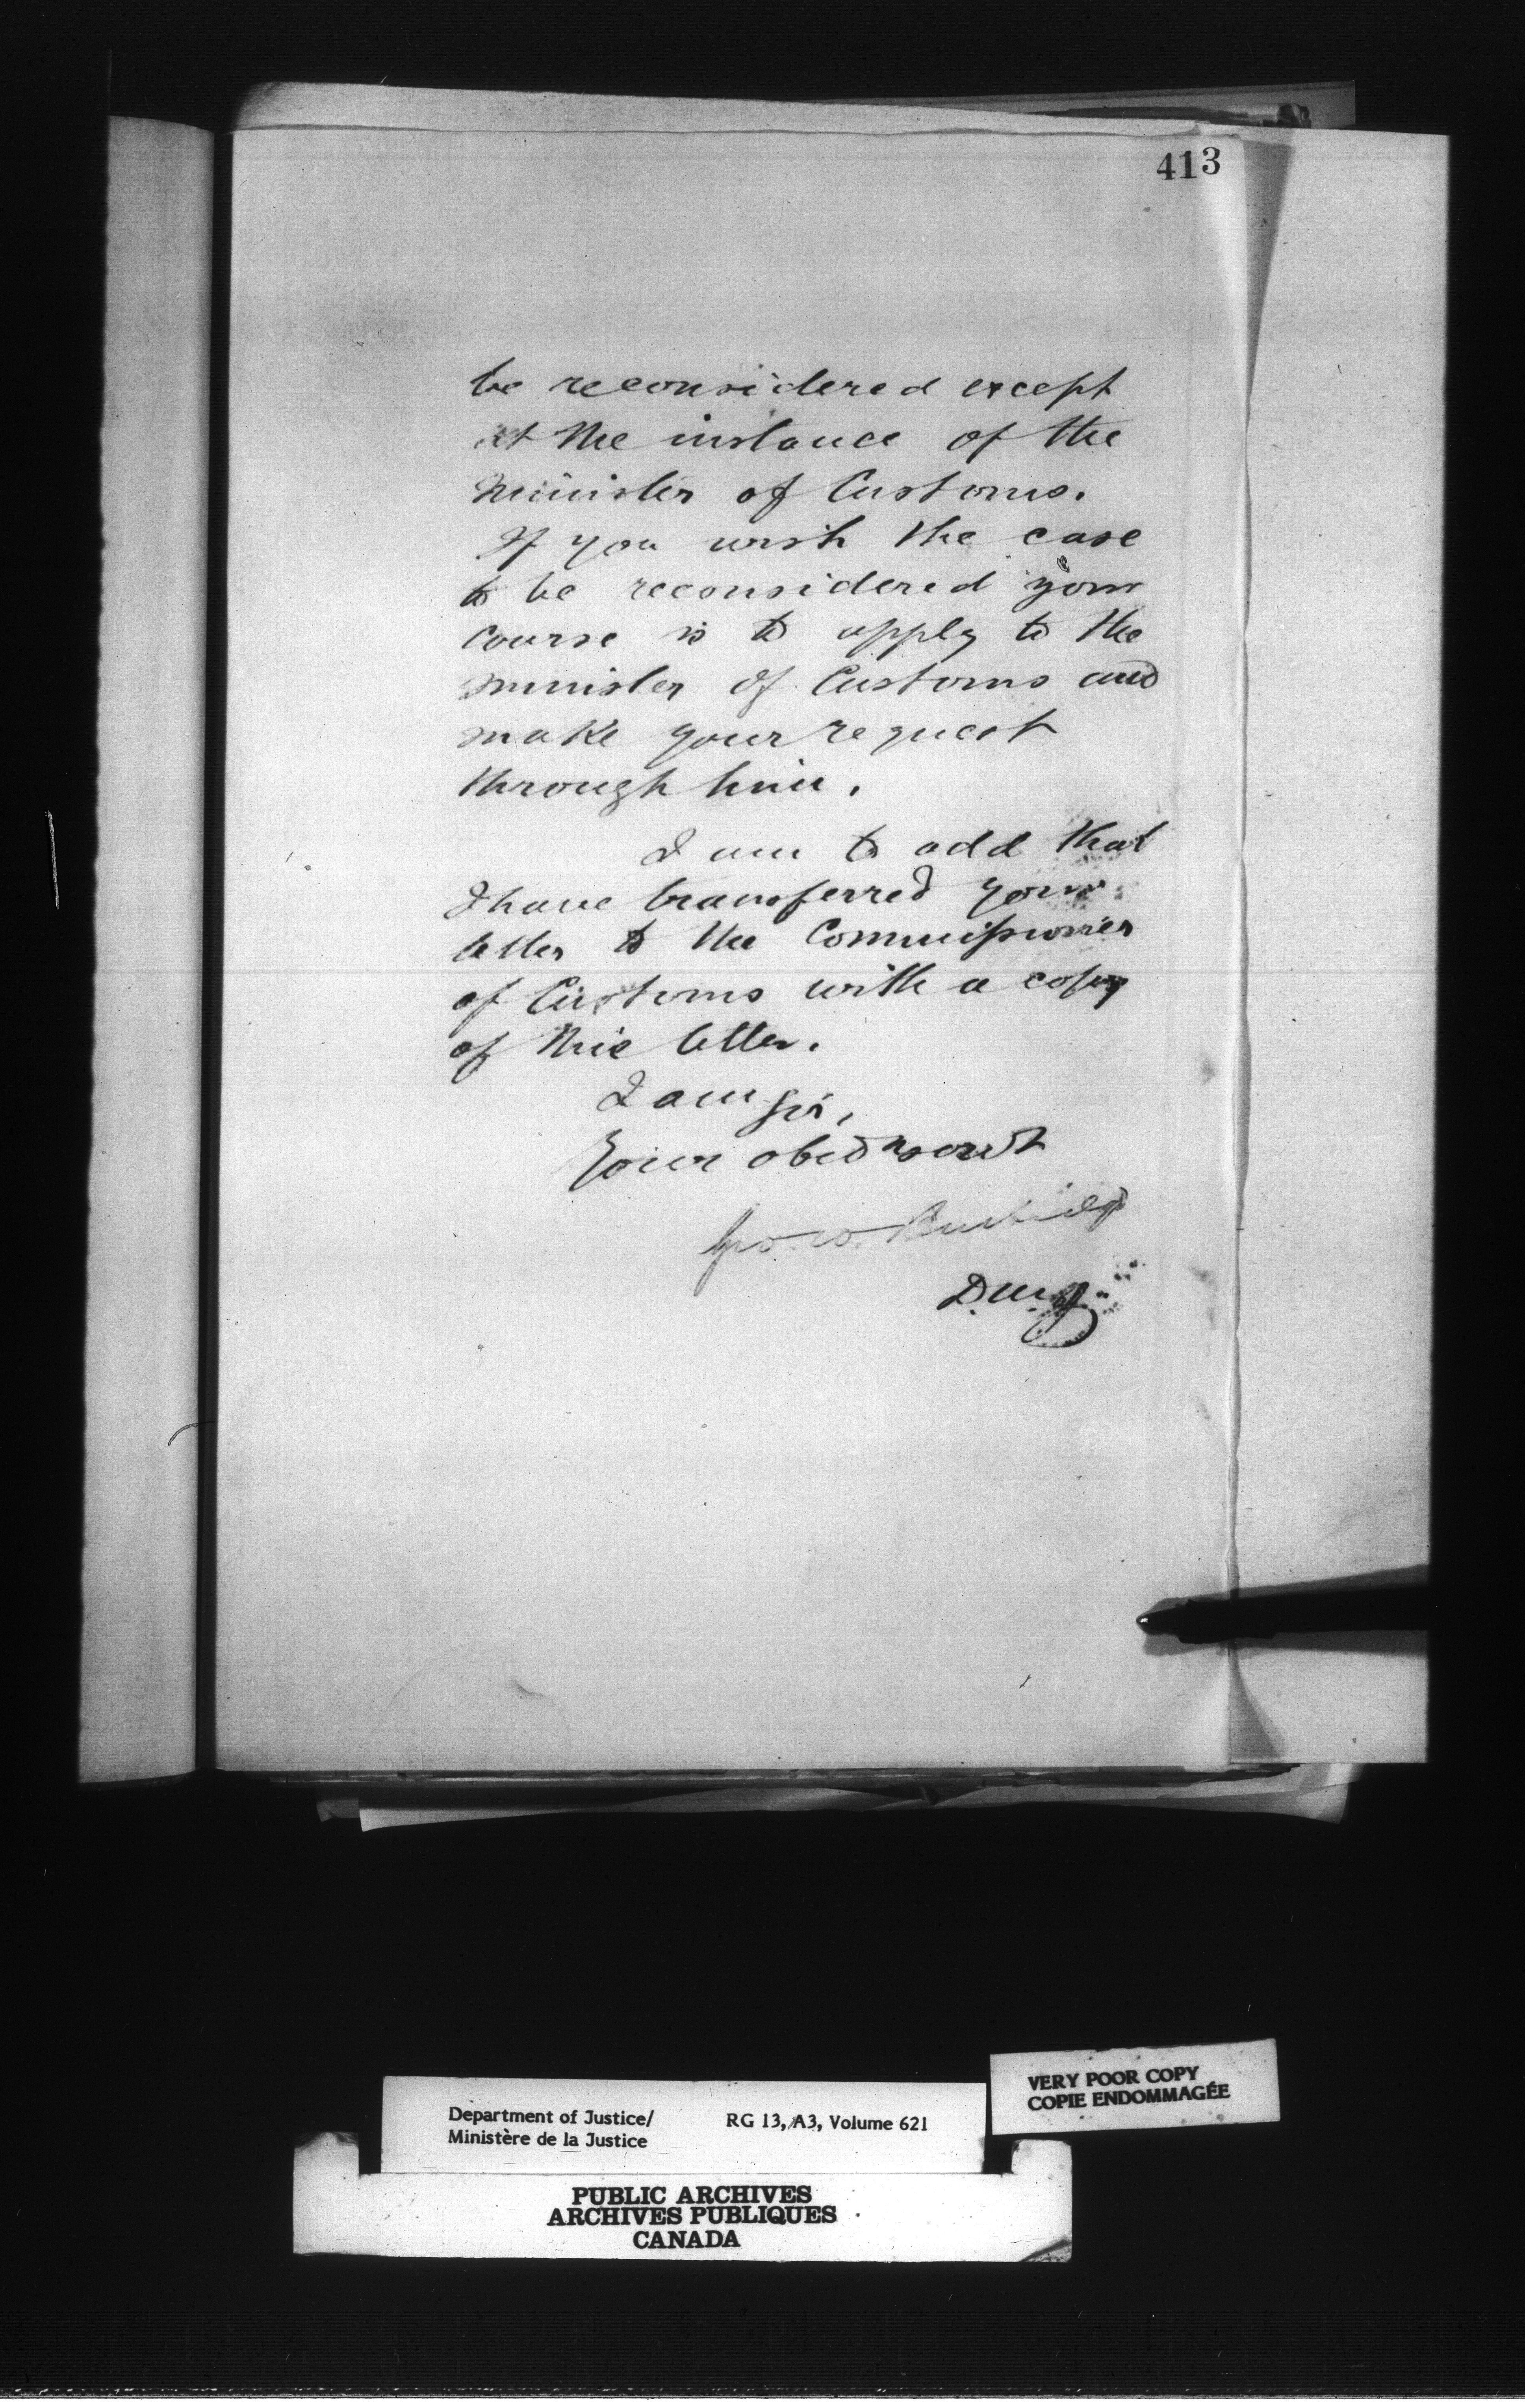 413
be reconsidered except
at the instance of the
Minister of Customs.
If you wish the case
to be reconsidered your
course is to apply to the
Minister of Customs and
make your request
through him.
I am to add that
I have transferred your
letter to the Commissioner
of Customs with a copy
of this letter.
I am Sir,
Your obed servt
Geo. W. Burbidge
D.M.J.
VERY POOR COPY
COPIE ENDOMMAGÉE
Department of Justice/ RG 13, A3, Volume 621
Ministère de la Justice
PUBLIC ARCHIVES
ARCHIVES PUBLIQUES
CANADA